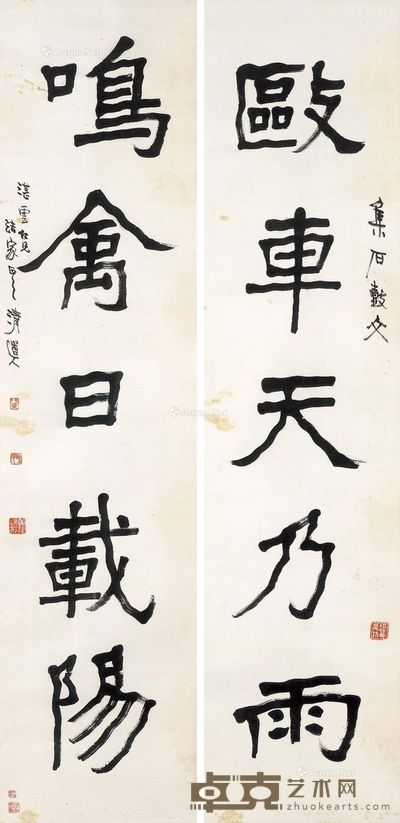 敺車天乃雨
集石鼓文
鳴禽日載陽
湛雲仁兄
法家正之 清道人
卓克艺术网
zhuokearts.com
Artron.Net